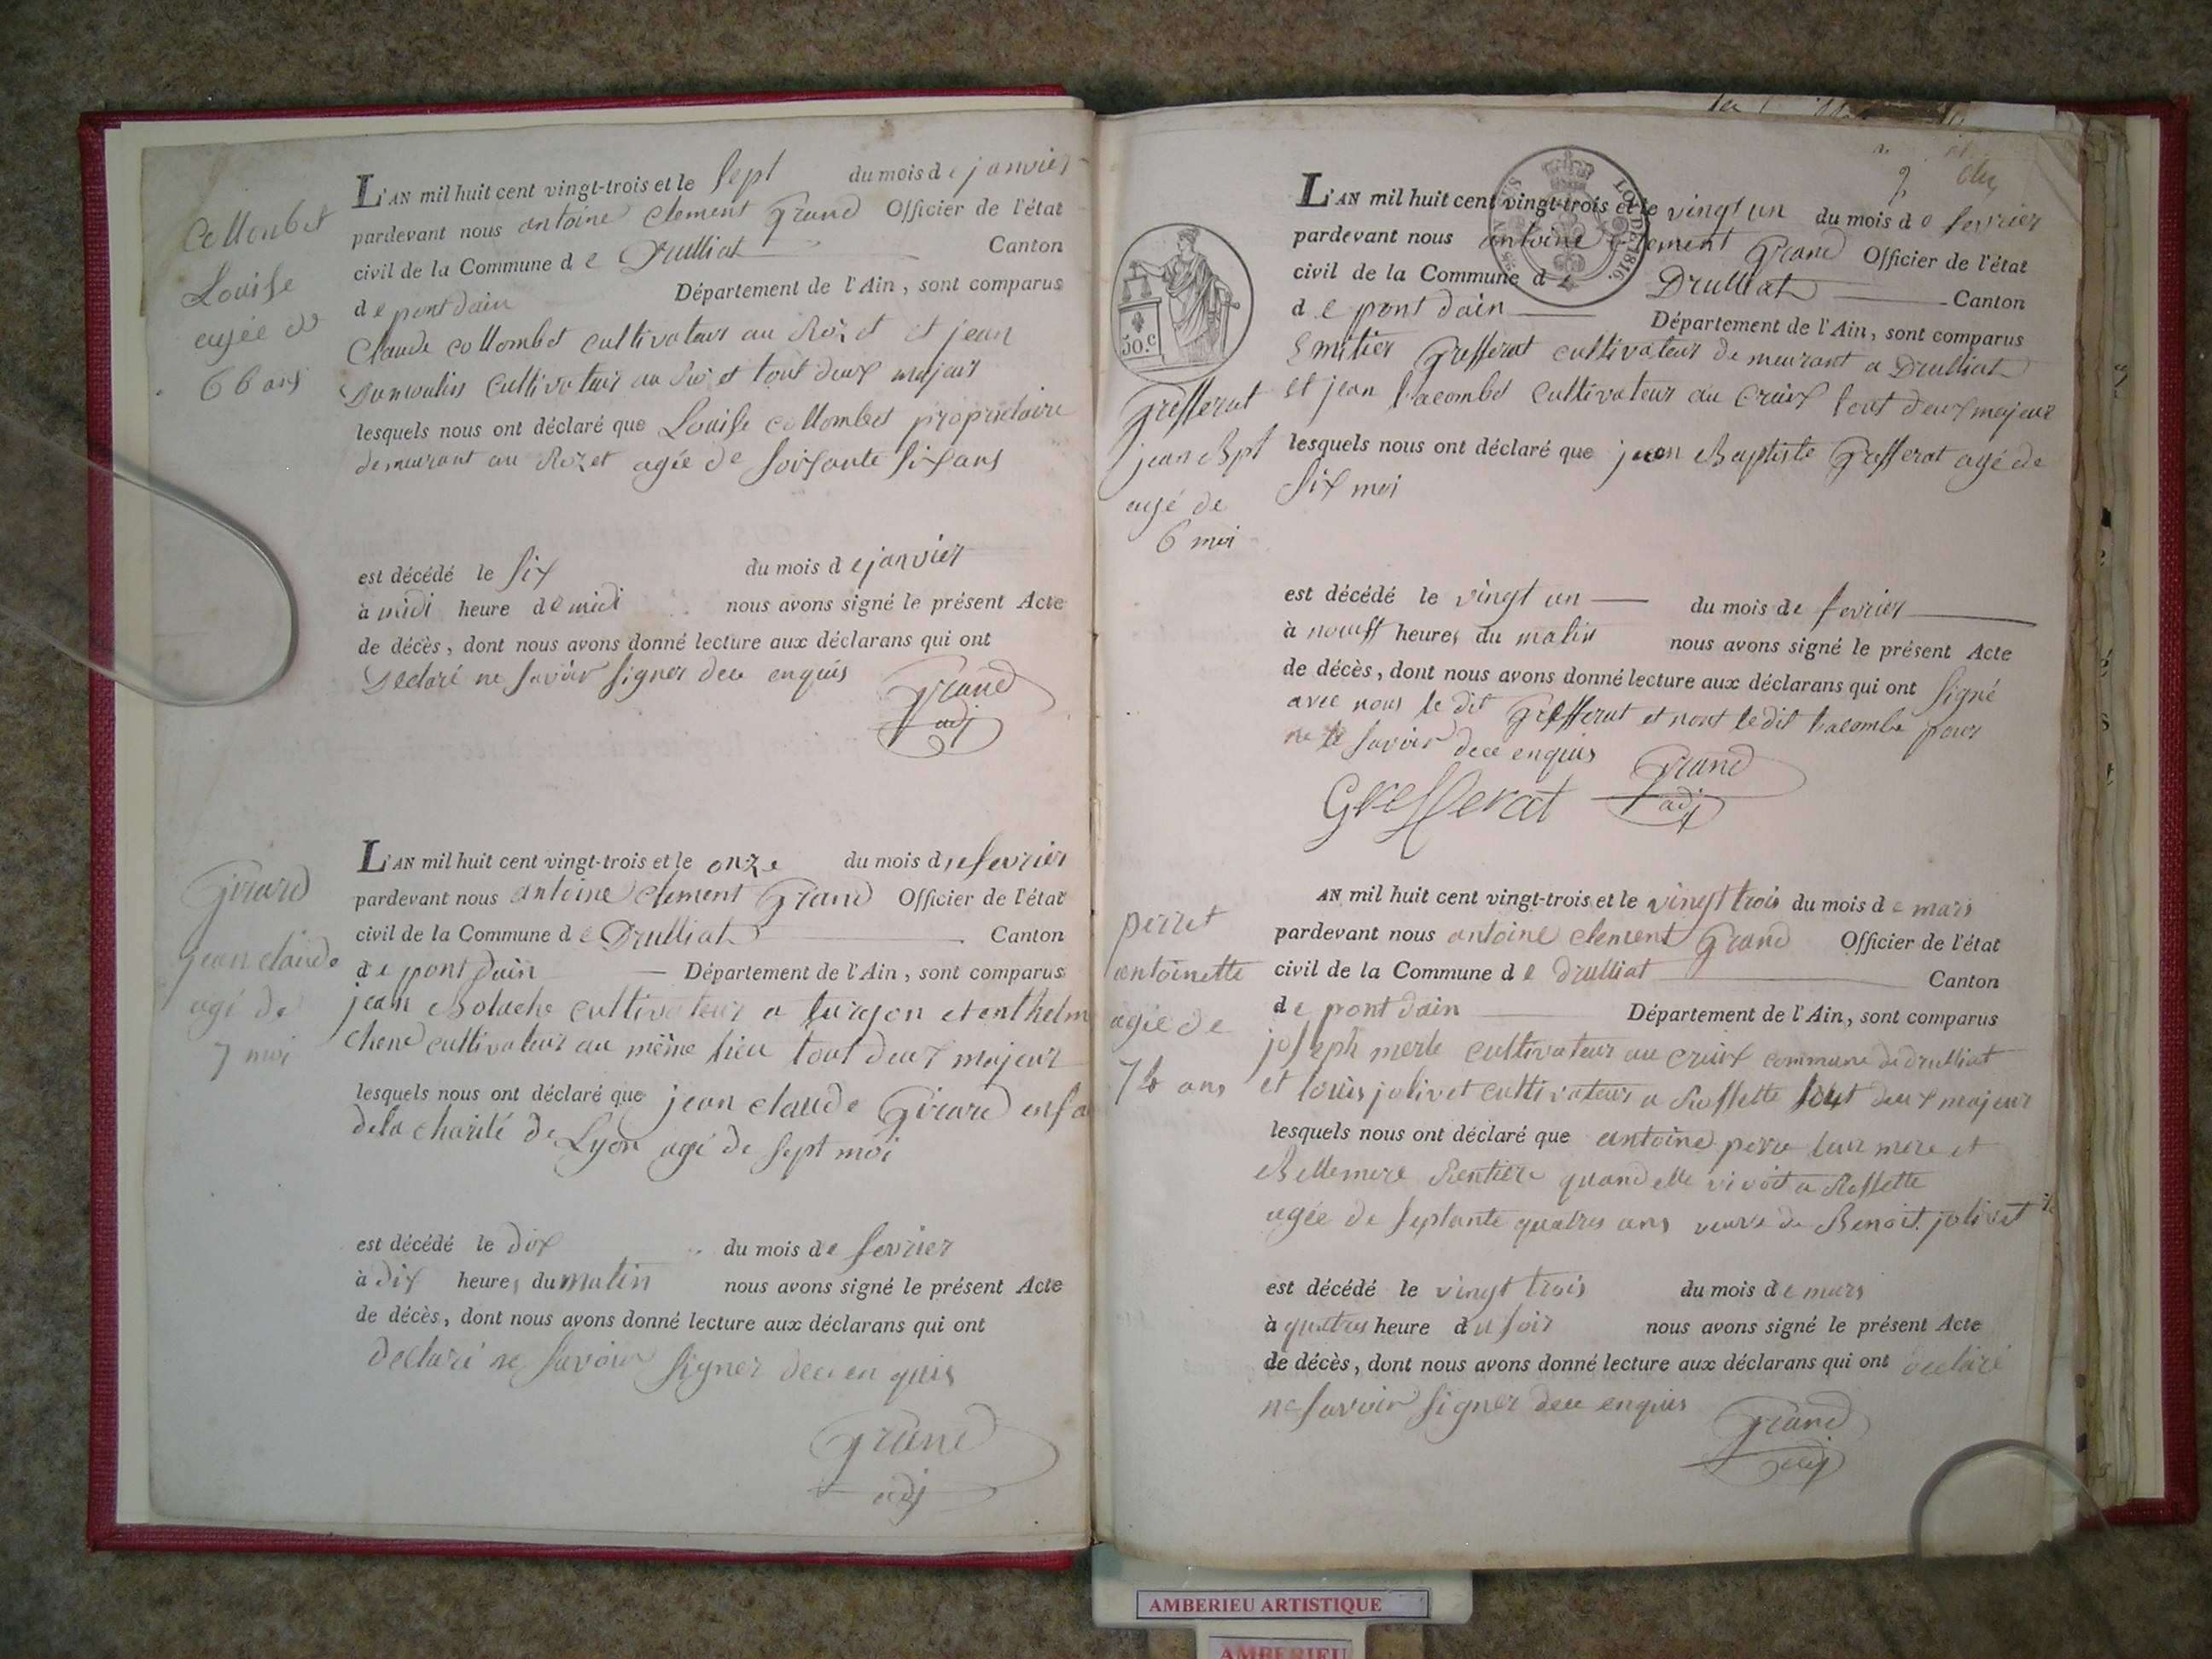 Collombet
Louise
agée de
66 ans
L'AN mil huit cent vingt-trois et le sept du mois de janvier
pardevant nous antoine clement Grand Officier de l'état
civil de la Commune de Drulliat Canton
de pont dain Département de l'Ain, sont comparus
Claude collombet cultivateur au Rozet et jean
Dumoulin cultivateur au Rozet tout deux majeur
lesquels nous ont déclaré que Louise collombet propriétaire
demeurant au Rozet agée de soixante six ans
est décédé le six du mois de janvier
à midi heure de midi nous avons signé le présent Acte
de décès, dont nous avons donné lecture aux déclarans qui ont
Declaré ne savoir signer dece enquis
Grand
adj
Girard
jean claude
agé de
7 moi
L'AN mil huit cent vingt-trois et le onze du mois de fevrier
pardevant nous antoine clement Grand Officier de l'état
civil de la Commune de Drulliat Canton
de pont dain Département de l'Ain, sont comparus
jean Bolache cultivateur a turgon et enthelm
chene cultivateur au même lieu tout deux majeur
lesquels nous ont déclaré que jean claude Girard enfa
dela charité de Lyon agé de sept moi
est décédé le dix du mois de fevrier
à dix heures du matin nous avons signé le présent Acte
de décès, dont nous avons donné lecture aux déclarans qui ont
declaré ne savoir signer dece enquis
Grand
adj
LOI DE 1816.
50.c
Grefferat
jean Bpt
agé de
6 moi
L'AN mil huit cent vingt-trois et le vingt un du mois de fevrier
pardevant nous antoine clement Grand Officier de l'état
civil de la Commune de Drulliat Canton
de pont dain Département de l'Ain, sont comparus
Grefferat cultivateur demeurant a Drulliat
et jean Lacombe cultivateur au Cruix tout deux majeur
lesquels nous ont déclaré que jean Baptiste Grefferat agé de
six moi
est décédé le vingt un du mois de fevrier
à neuff heures du matin nous avons signé le présent Acte
de décès, dont nous avons donné lecture aux déclarans qui ont signé
avec nous le dit Grefferat et nont le dit Lacombe pour
ne le savoir dece enquis
Grand
adj
Grefferat
perret
antoinette
agée de
74 ans
AN mil huit cent vingt-trois et le vingt trois du mois de mars
pardevant nous antoine clement Grand Officier de l'état
civil de la Commune de Drulliat Canton
de pont dain Département de l'Ain, sont comparus
joseph merle cultivateur au cruix commune de drulliat
et louis jolivet cultivateur a Rossette tout deux majeur
lesquels nous ont déclaré que antoine perre leur mere et
Bellemere Rentiere quand elle vivoit a Rossette
agée de septante quatres ans veuve de Benoit jolivet
est décédé le vingt trois du mois de mars
à quatres heure du soir nous avons signé le présent Acte
de décès, dont nous avons donné lecture aux déclarans qui ont declaré
ne savoir signer dece enquis
Grand
adj
AMBERIEU ARTISTIQUE
AMBERIEU